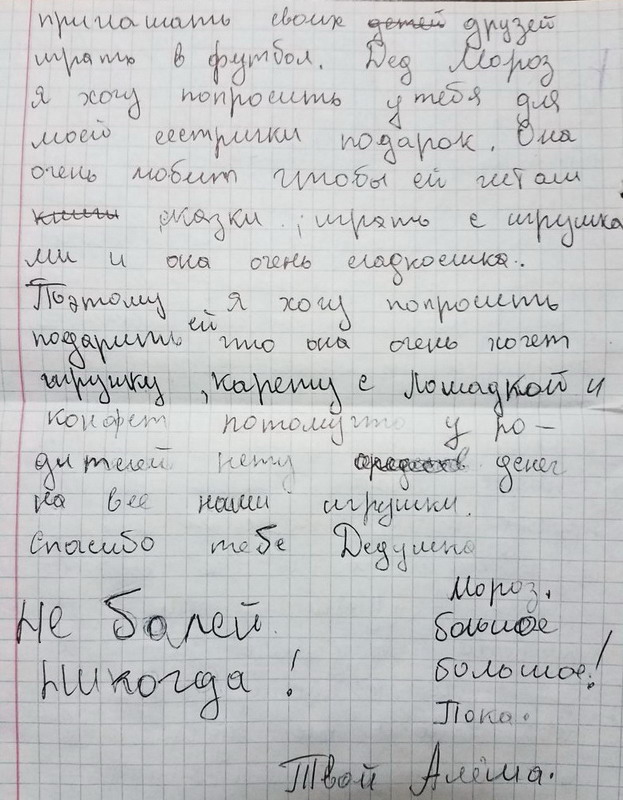 приглашать своих детей друзей
играть в футбол. Дед Мороз
я хочу попросить у тебя для
моей сестрички подарок. Она
очень любит чтобы ей читали
книги сказки, играть с игрушка
ми и она очень сладкоешка.
Поэтому я хочу попросить
подарить ей что она очень хочет
игрушку, карету с лошадкой и
конфет потомучто у ро-
дителей нету денег
на все наши игрушки.
Спасибо тебе Дедушка
Мороз.
большое
большое!
Пока.
Не болей
никогда!
Твой Алёша.